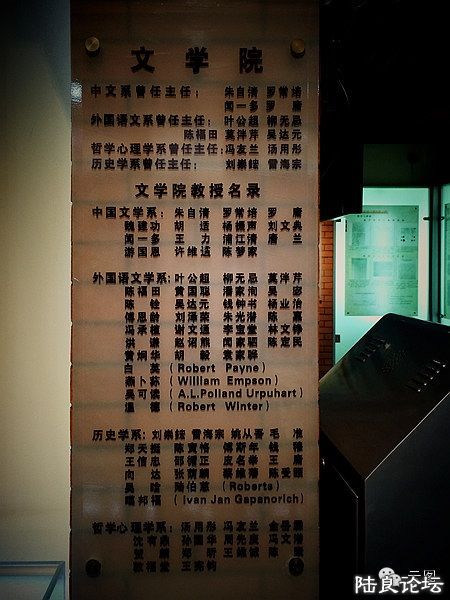 文学院
中文系曾任主任： 朱自清 罗常培
闻一多 罗 庸
外国语文系曾任主任： 叶公超 柳无忌
陈福田 莫泮芹 吴达元
哲学心理学系曾任主任：冯友兰 汤用彤
历史学系曾任主任： 刘崇鋐 雷海宗
文学院教授名录
中国文学系： 朱自清 罗常培 罗 庸
魏建功 胡 适 杨振声 刘文典
闻一多 王 力 浦江清 唐 兰
游国恩 许维遹 陈梦家
外国语文学系：叶公超 柳无忌 莫泮芹
陈福田 黄国聪 潘家洵 吴 宓
陈 铨 吴达元 钱钟书 杨业治
傅恩龄 刘泽荣 朱光潜 陈 嘉
冯承植 谢文通 李宝堂 林文铮
洪 谦 赵诏熊 闻家驷 陈定民
黄炯华 胡 毅 袁家骅
白 英（Robert Payne）
燕卜荪（William Empson）
吴可读（A.L.Polland Urpuhart）
温 德（Robert Winter）
历史学系：刘崇鋐 雷海宗 姚从吾 毛 准
郑天挺 陈寅恪 傅斯年 钱 穆
王信忠 邵循正 皮名举 王 庸
向 达 张荫麟 蔡维藩 陈受颐
吴 晗 陆伯慈（Roberts）
噶邦福（Ivan Jan Gapanorich）
哲学心理学系：汤用彤 冯友兰 金岳霖
沈有鼎 孙国华 周先庚 冯文潜
贺 麟 郑 昕 王维诚 陈 康
敦福堂 王宪钧
云图
陆良论坛